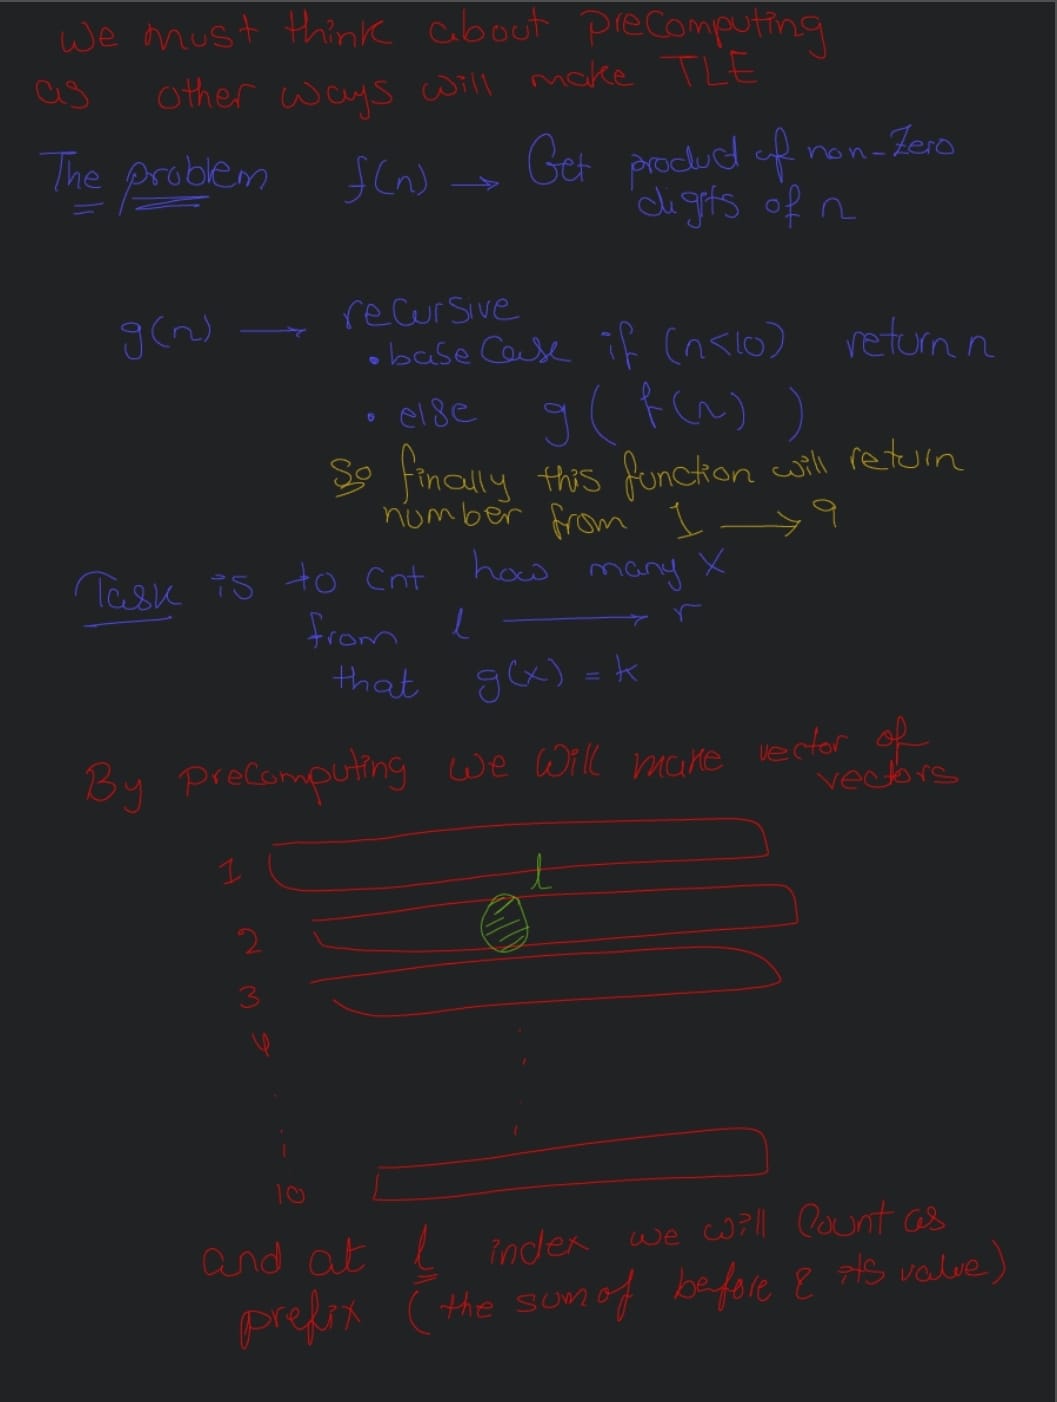 We must think about precomputing
as other ways will make TLE
The problem f(n) → Get product of non-Zero
digits of n
g(n) → recursive
• base Case if (n<10) return n
• else g( f(n) )
So finally this function will return
number from 1 → 9
Task is to cnt how many X
from l → r
that g(x) = k
By precomputing we will make vector of
vectors
1
l
2
3
4
10
and at l index we will Count as
prefix (the sum of before & its value)